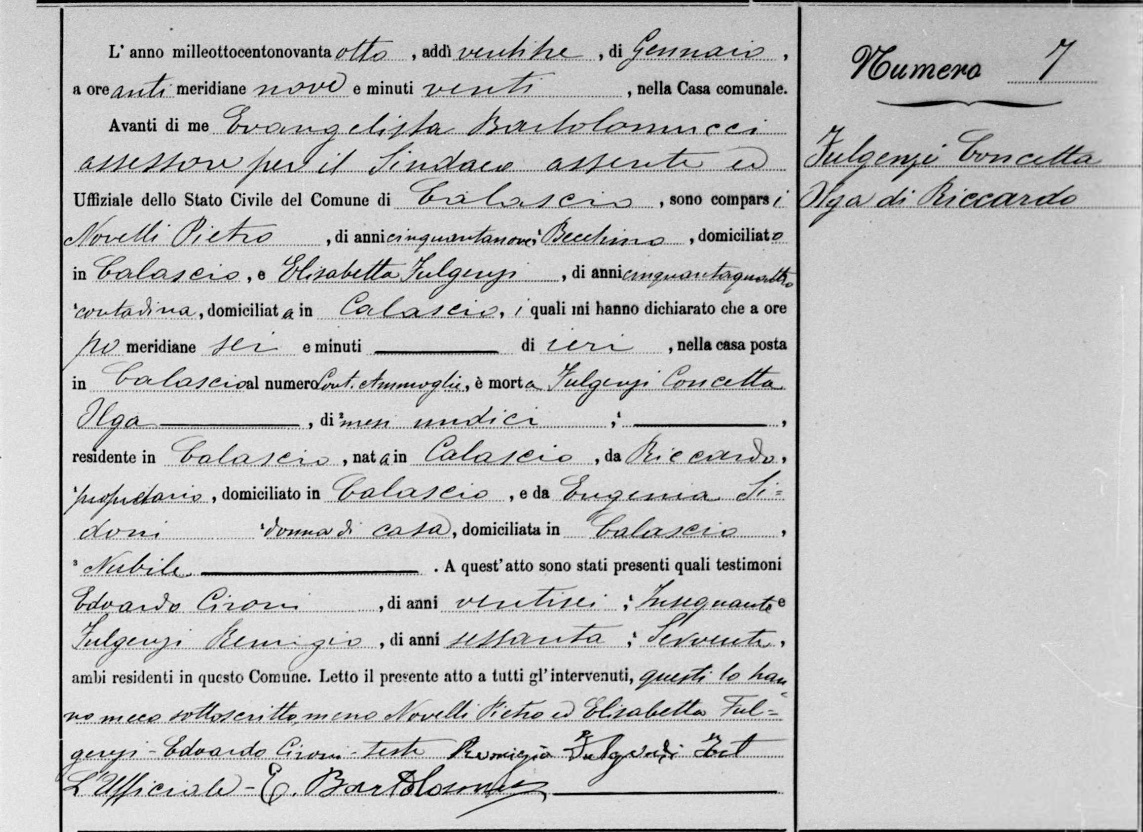 L' anno milleottocentonovanta otto, addì ventitre, di Gennaio,
a ore anti meridiane nove e minuti venti, nella Casa comunale.
Avanti di me Evangelista Bartolomucci
assessore per il Sindaco assente ed
Uffiziale dello Stato Civile del Comune di Calascio, sono comparsi
Novelli Pietro, di anni cinquantanove, Becchino, domiciliato
in Calascio, e Elisabetta Fulgenzi, di anni cinquantaquattro
contadina, domiciliata in Calascio, i quali mi hanno dichiarato che a ore
po meridiane sei e minuti di ieri, nella casa posta
in Calascio al numero Cont. Ammoglie, è morta Fulgenzi Concetta
Ilga, di mesi undici,
residente in Calascio, nata in Calascio, da Riccardo,
propietario, domiciliato in Calascio, e da Eugenia Si=
doni donna di casa, domiciliata in Calascio,
Nubile. A quest'atto sono stati presenti quali testimoni
Edoardo Cironi, di anni ventisei, Insegnante e
Fulgenzi Remigio, di anni sessanta, Servente,
ambi residenti in questo Comune. Letto il presente atto a tutti gl'intervenuti, questi lo han=
no meco sottoscritto, meno Novelli Pietro ed Elisabetta Ful=
genzi - Edoardo Cironi - teste Remigio Fulgenzi
L'Ufficiale - E. Bartolomucci
Numero 7
Fulgenzi Concetta
Ilga di Riccardo